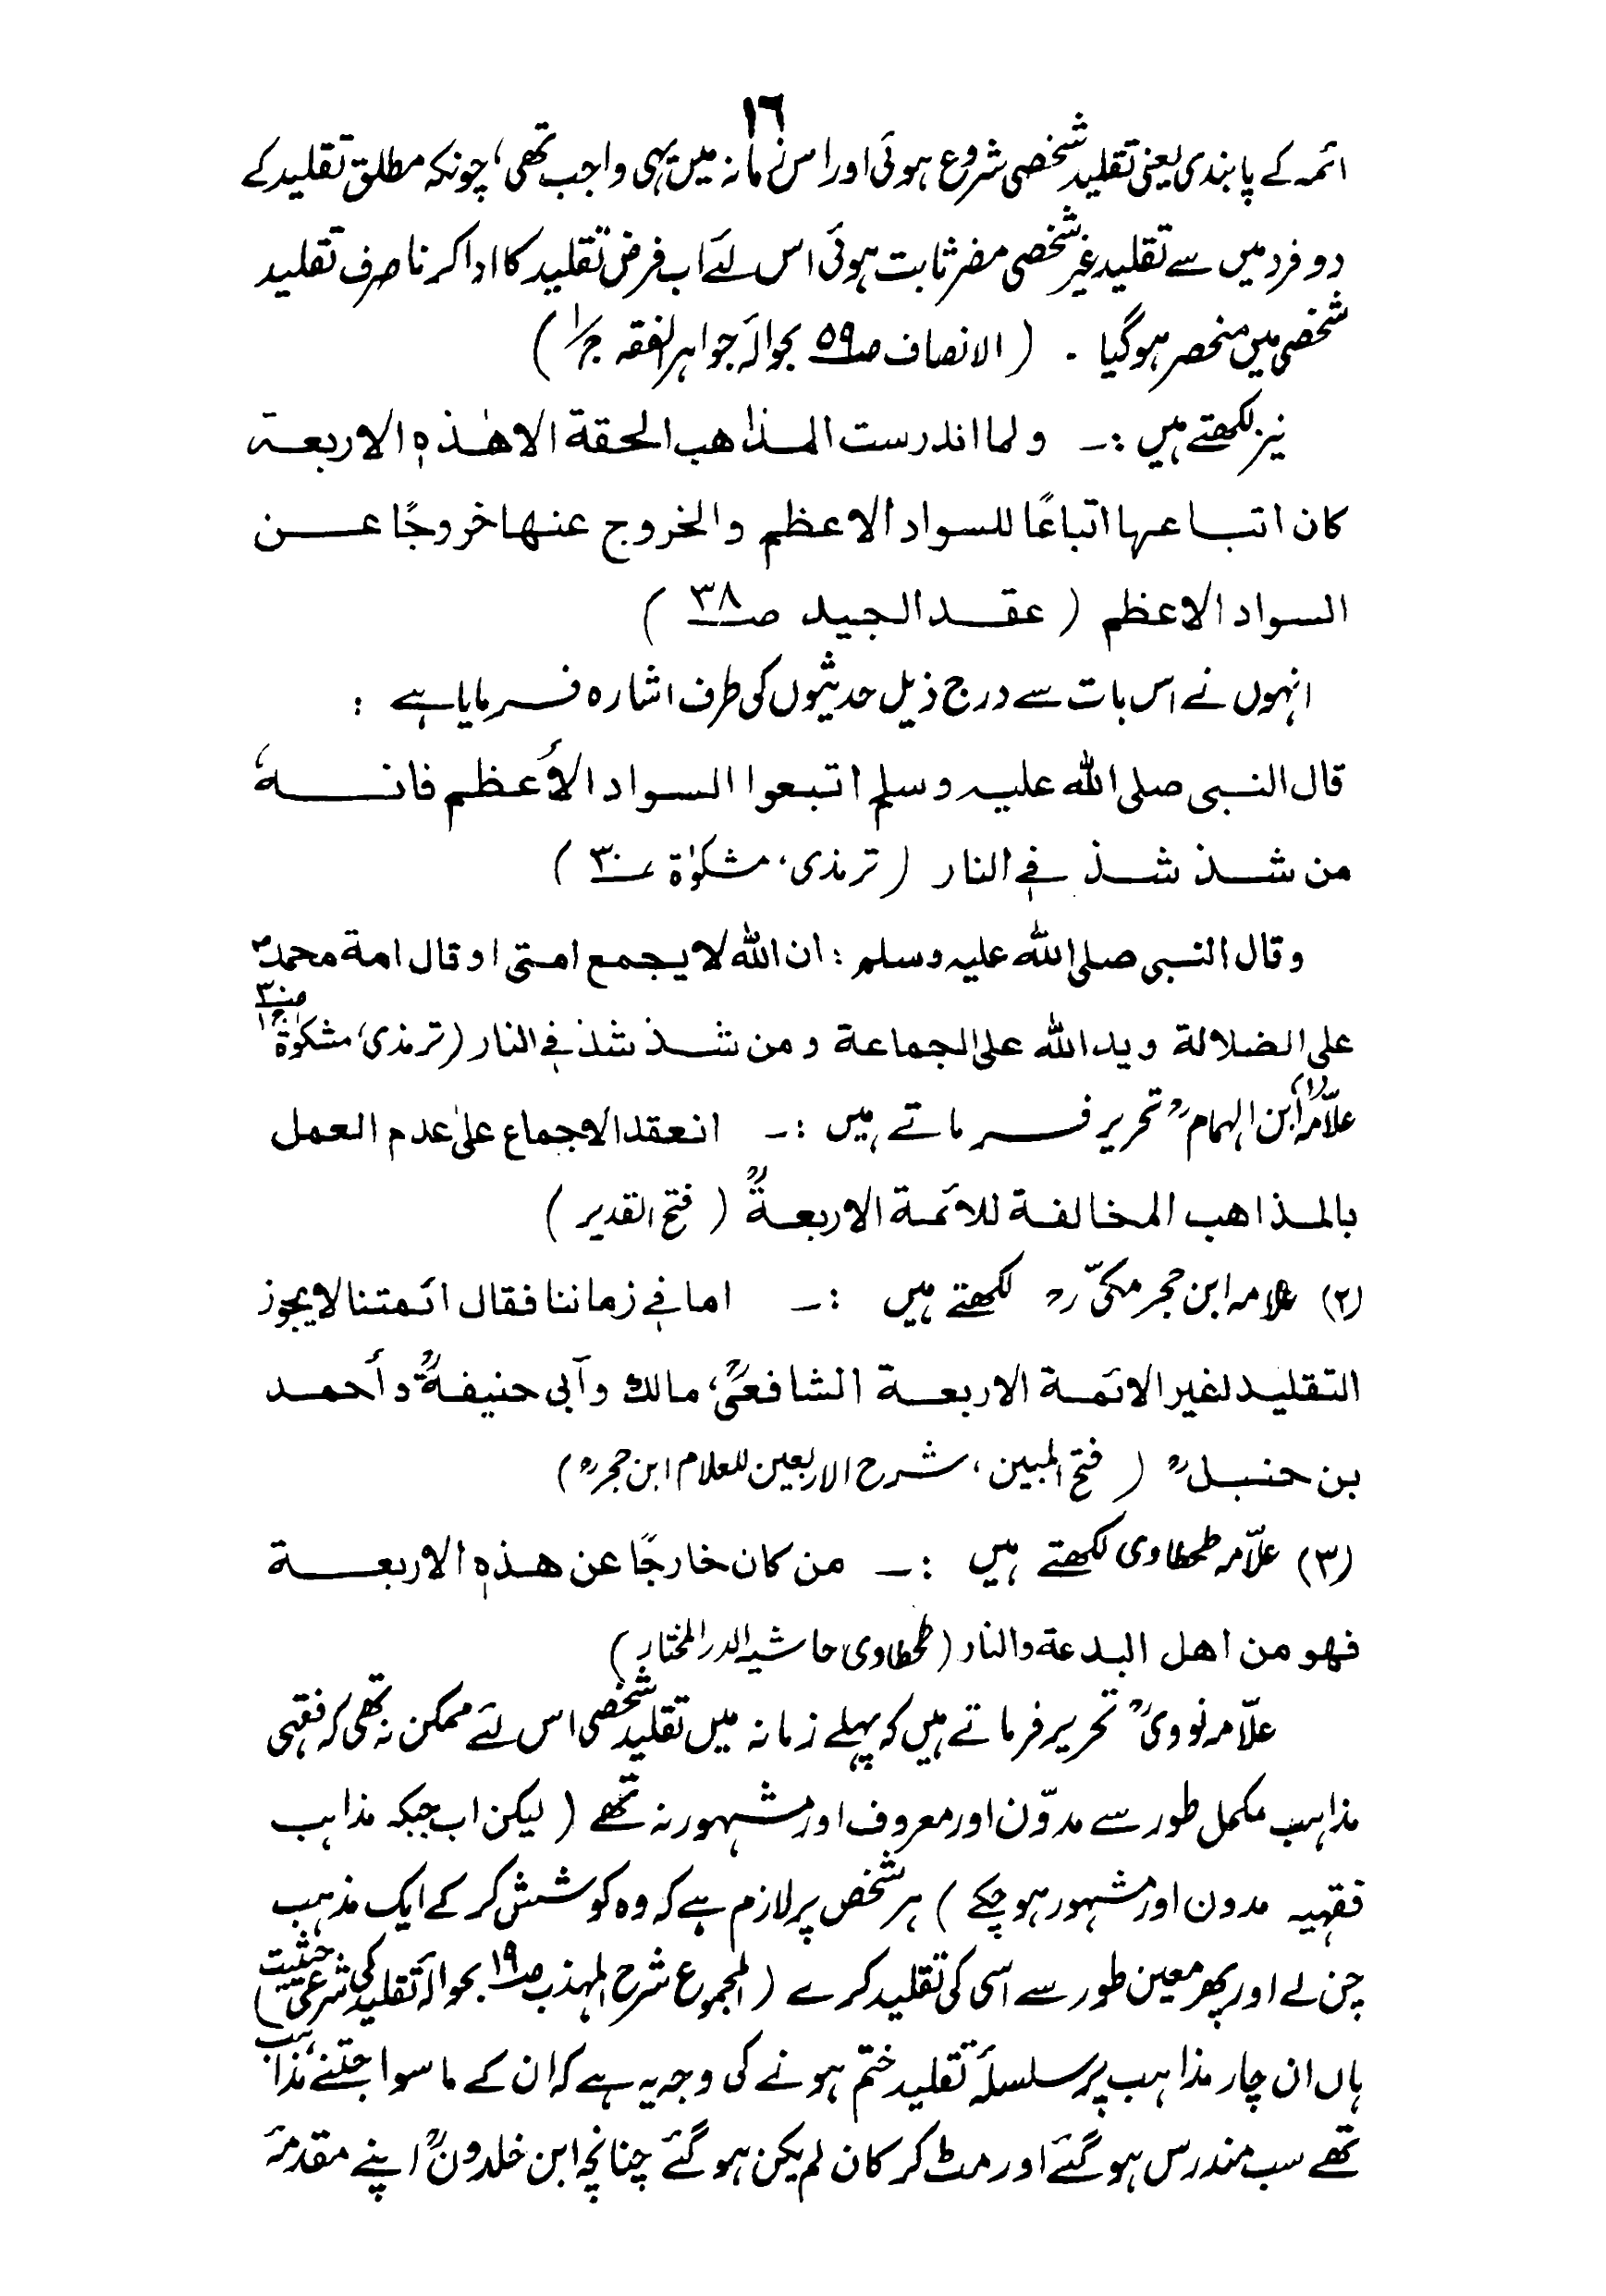 ١٦
ائمہ کے پابندی یعنی تقلید شخصی شروع ہوئی اور اس زمانہ میں یہی واجب تھی، چونکہ مطلق تقلید کے
دو فرد میں سے تقلید غیر شخصی مضر ثابت ہوئی اس لئے اب فرض تقلید کا ادا کرنا صرف تقلید
شخصی میں منحصر ہوگیا ۔ ( الانصاف صـ٥٩ بحوالہ جواہر الفقہ ج/١ )
نیز لکھتے ہیں :ـ ولما اندرست المذاهب الحقة الا هٰذه الاربعة
كان اتباعها اتباعًا للسواد الاعظم والخروج عنها خروجًا عن
السواد الاعظم ( عقد الجيد صـ٣٨ )
انہوں نے اس بات سے درج ذیل حدیثوں کی طرف اشارہ فرمایا ہے :
قال النبی صلی اللہ علیہ وسلم اتبعوا السواد الأعظم فانهٗ
من شذ شذ فی النار ( ترمذی، مشکوٰۃ صـ٣٠ )
وقال النبی صلی اللہ علیہ وسلم : ان اللہ لا یجمع امتی او قال امة محمدؐ
علی الضلالة وید اللہ علی الجماعة ومن شذ شذ فی النار (ترمذی، مشکوٰۃ صـ٣٠ ج١
(١) علاّمہ ابن الہمامؒ تحریر فرماتے ہیں :ـ انعقد الاجماع علیٰ عدم العمل
بالمذاهب المخالفة للائمة الاربعةؒ ( فتح القدیر )
(٢) علامہ ابن حجر مکیّ رح لکھتے ہیں :ـ اما فی زماننا فقال ائمتنا لا یجوز
التقلید لغیر الائمة الاربعة الشافعیؒ، مالك وأبی حنیفةؒ و أحمد
بن حنبلؒ ( فتح المبین، شرح الاربعین للعلام ابن حجرؒ )
(٣) علاّمہ طحطاوی لکھتے ہیں :ـ من کان خارجًا عن هذه الاربعة
فهو من اهل البدعة والنار (طحطاوی حاشیہ الدر المختار)
علاّمہ نوویؒ تحریر فرماتے ہیں کہ پہلے زمانہ میں تقلید شخصی اس لئے ممکن نہ تھی کہ فقہی
مذاہب مکمل طور سے مدوّن اور معروف اور مشہور نہ تھے ( لیکن اب جبکہ مذاہب
فقہیہ مدون اور مشہور ہو چکے ) ہر شخص پر لازم ہے کہ وہ کوشش کر کے ایک مذہب
چن لے اور پھر معین طور سے اسی کی تقلید کرے ( المجموع شرح المہذب صـ١٩ بحوالہ تقلید کی شرعی حیثیت)
ہاں ان چار مذاہب پر سلسلۂ تقلید ختم ہونے کی وجہ یہ ہے کہ ان کے ماسوا جتنے مذاہب
تھے سب مندرس ہو گئے اور مٹ کر کان لم یکن ہو گئے چنانچہ ابن خلدونؒ اپنے مقدمۂ